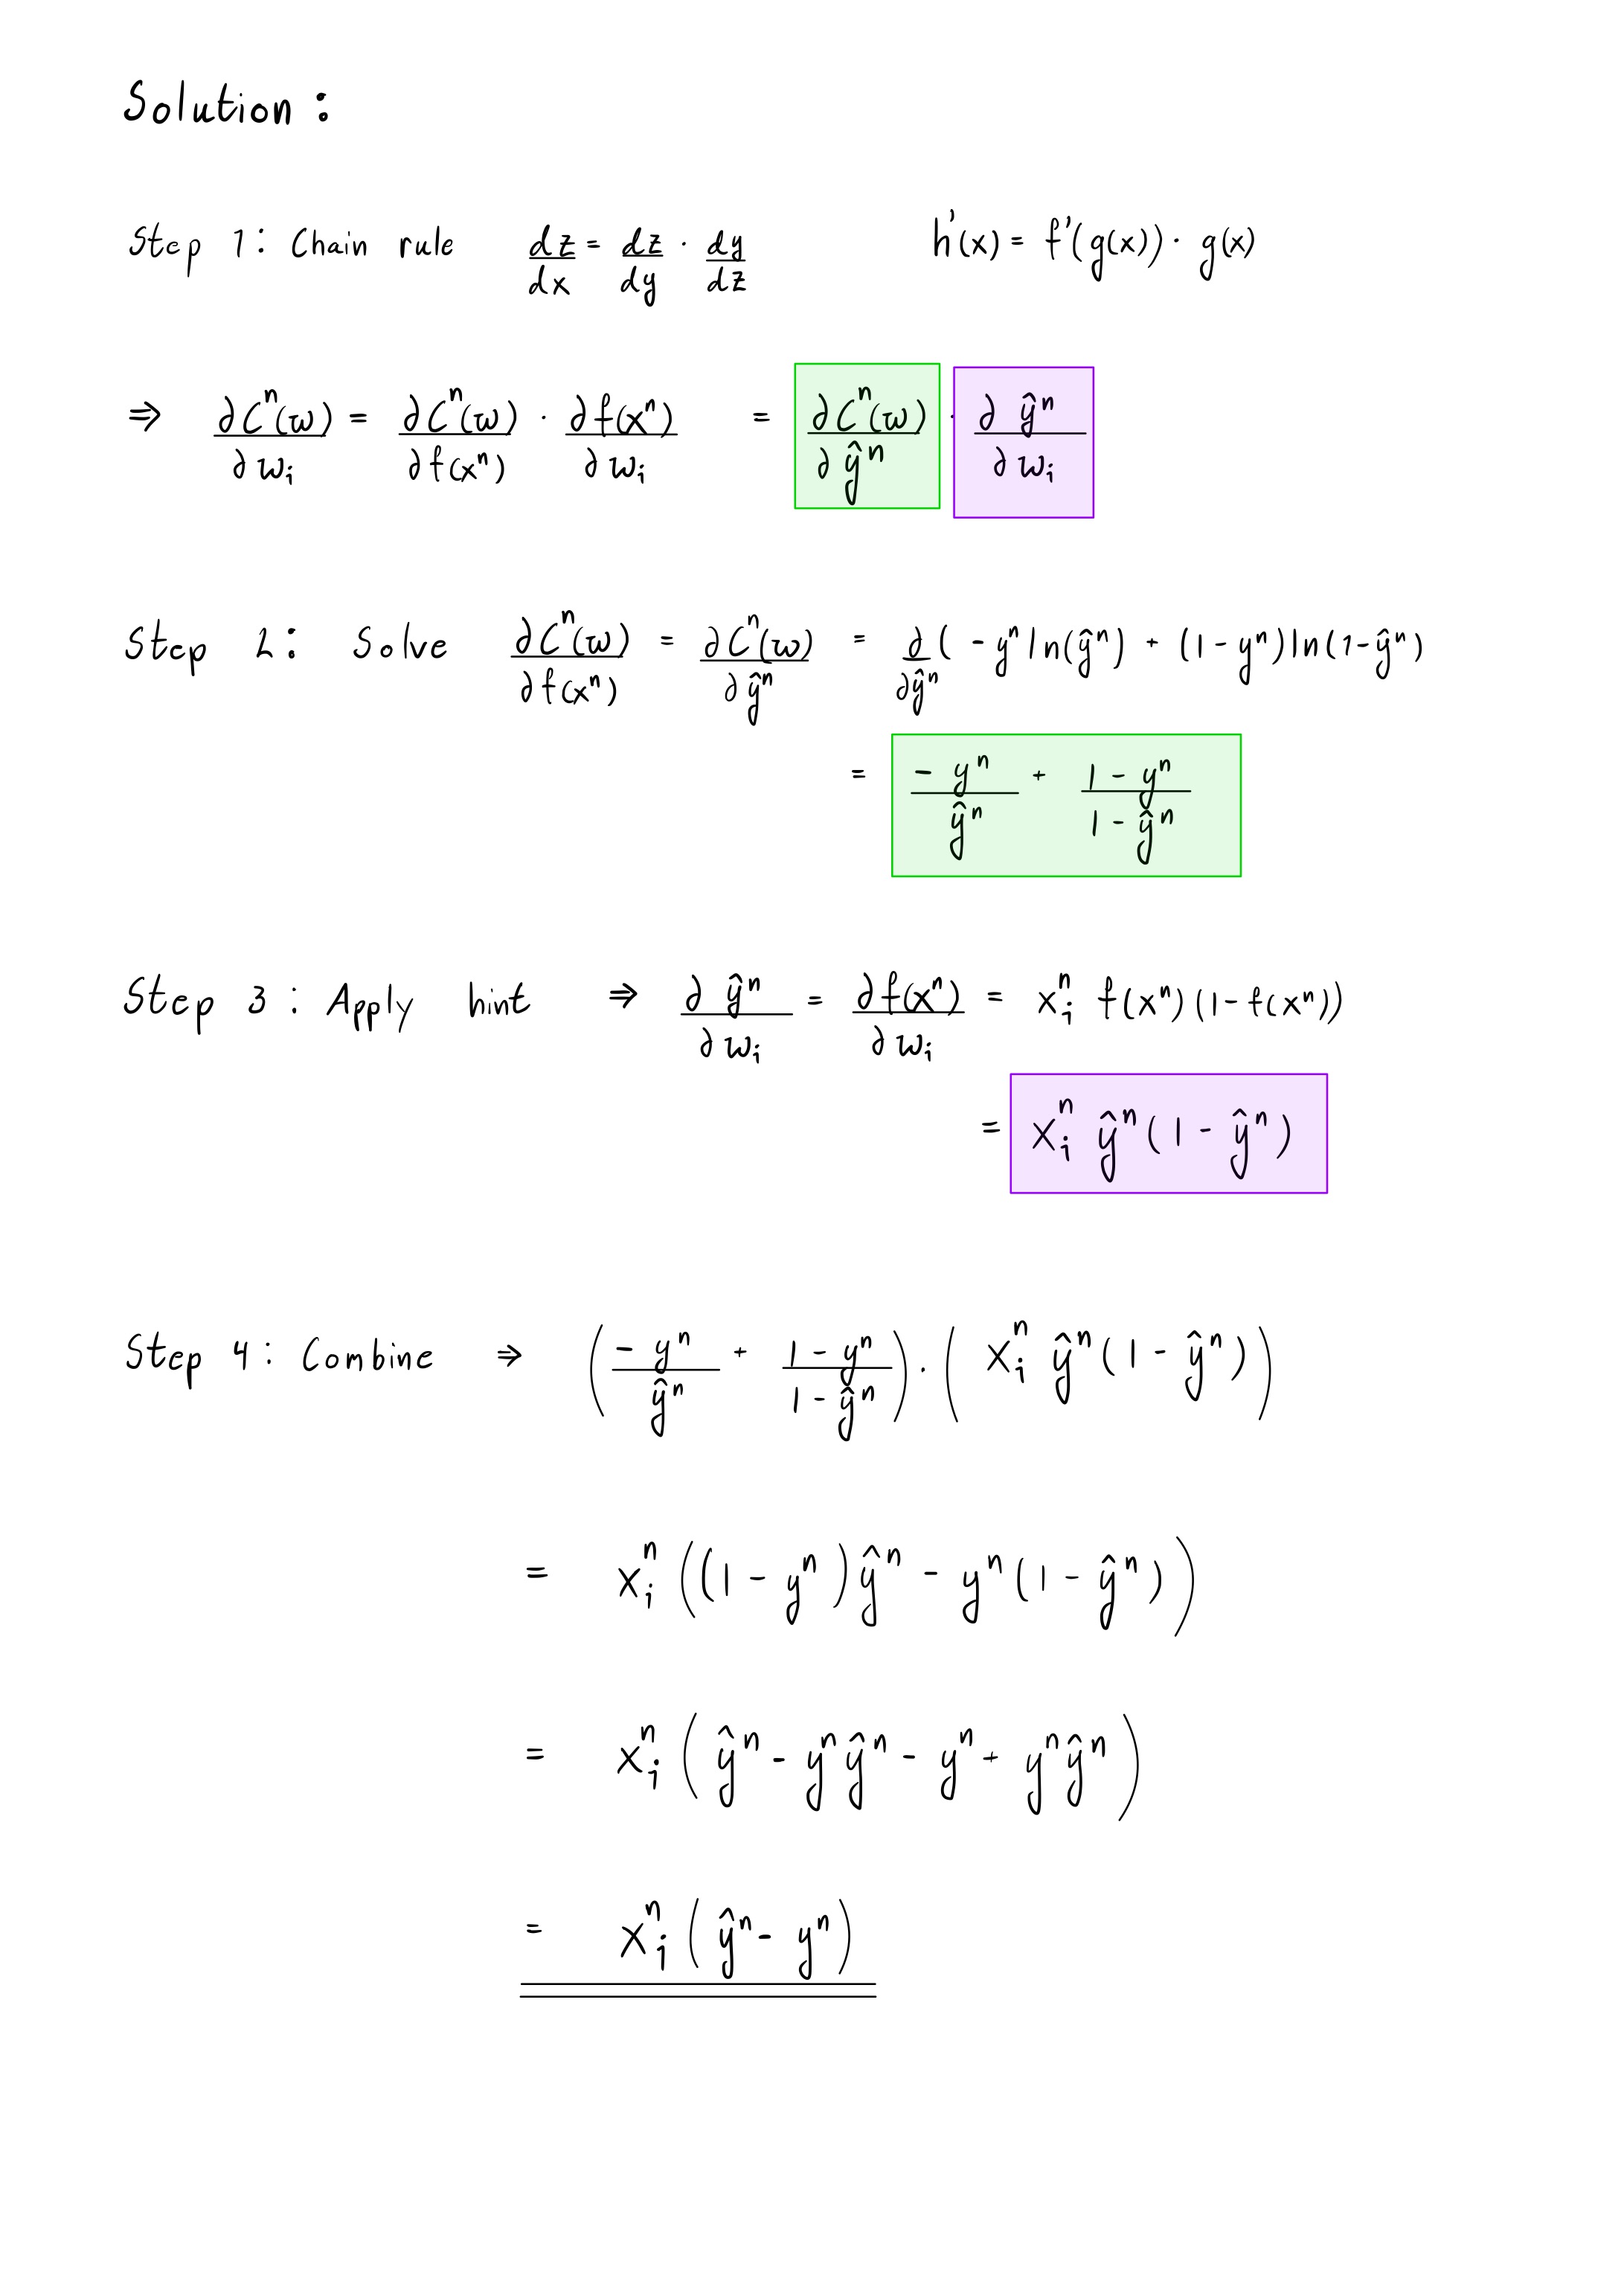 Solution:
Step 1: Chain rule dz/dx = dz/dy · dy/dz h'(x) = f'(g(x)) · g(x)
⇒ ∂Cⁿ(w)/∂wᵢ = ∂Cⁿ(w)/∂f(xⁿ) · ∂f(xⁿ)/∂wᵢ = ∂Cⁿ(w)/∂ŷⁿ · ∂ŷⁿ/∂wᵢ
Step 2: Solve ∂Cⁿ(w)/∂f(xⁿ) = ∂Cⁿ(w)/∂ŷⁿ = ∂/∂ŷⁿ (-yⁿ ln(ŷⁿ) + (1-yⁿ)ln(1-ŷⁿ)
= -yⁿ/ŷⁿ + 1-yⁿ/1-ŷⁿ
Step 3: Apply hint ⇒ ∂ŷⁿ/∂wᵢ = ∂f(xⁿ)/∂wᵢ = xᵢⁿ f(xⁿ)(1-f(xⁿ))
= xᵢⁿ ŷⁿ(1-ŷⁿ)
Step 4: Combine ⇒ (-yⁿ/ŷⁿ + 1-yⁿ/1-ŷⁿ) · (xᵢⁿ ŷⁿ(1-ŷⁿ))
= xᵢⁿ ((1-yⁿ)ŷⁿ - yⁿ(1-ŷⁿ))
= xᵢⁿ (ŷⁿ - yⁿŷⁿ - yⁿ + yⁿŷⁿ)
= xᵢⁿ (ŷⁿ - yⁿ)